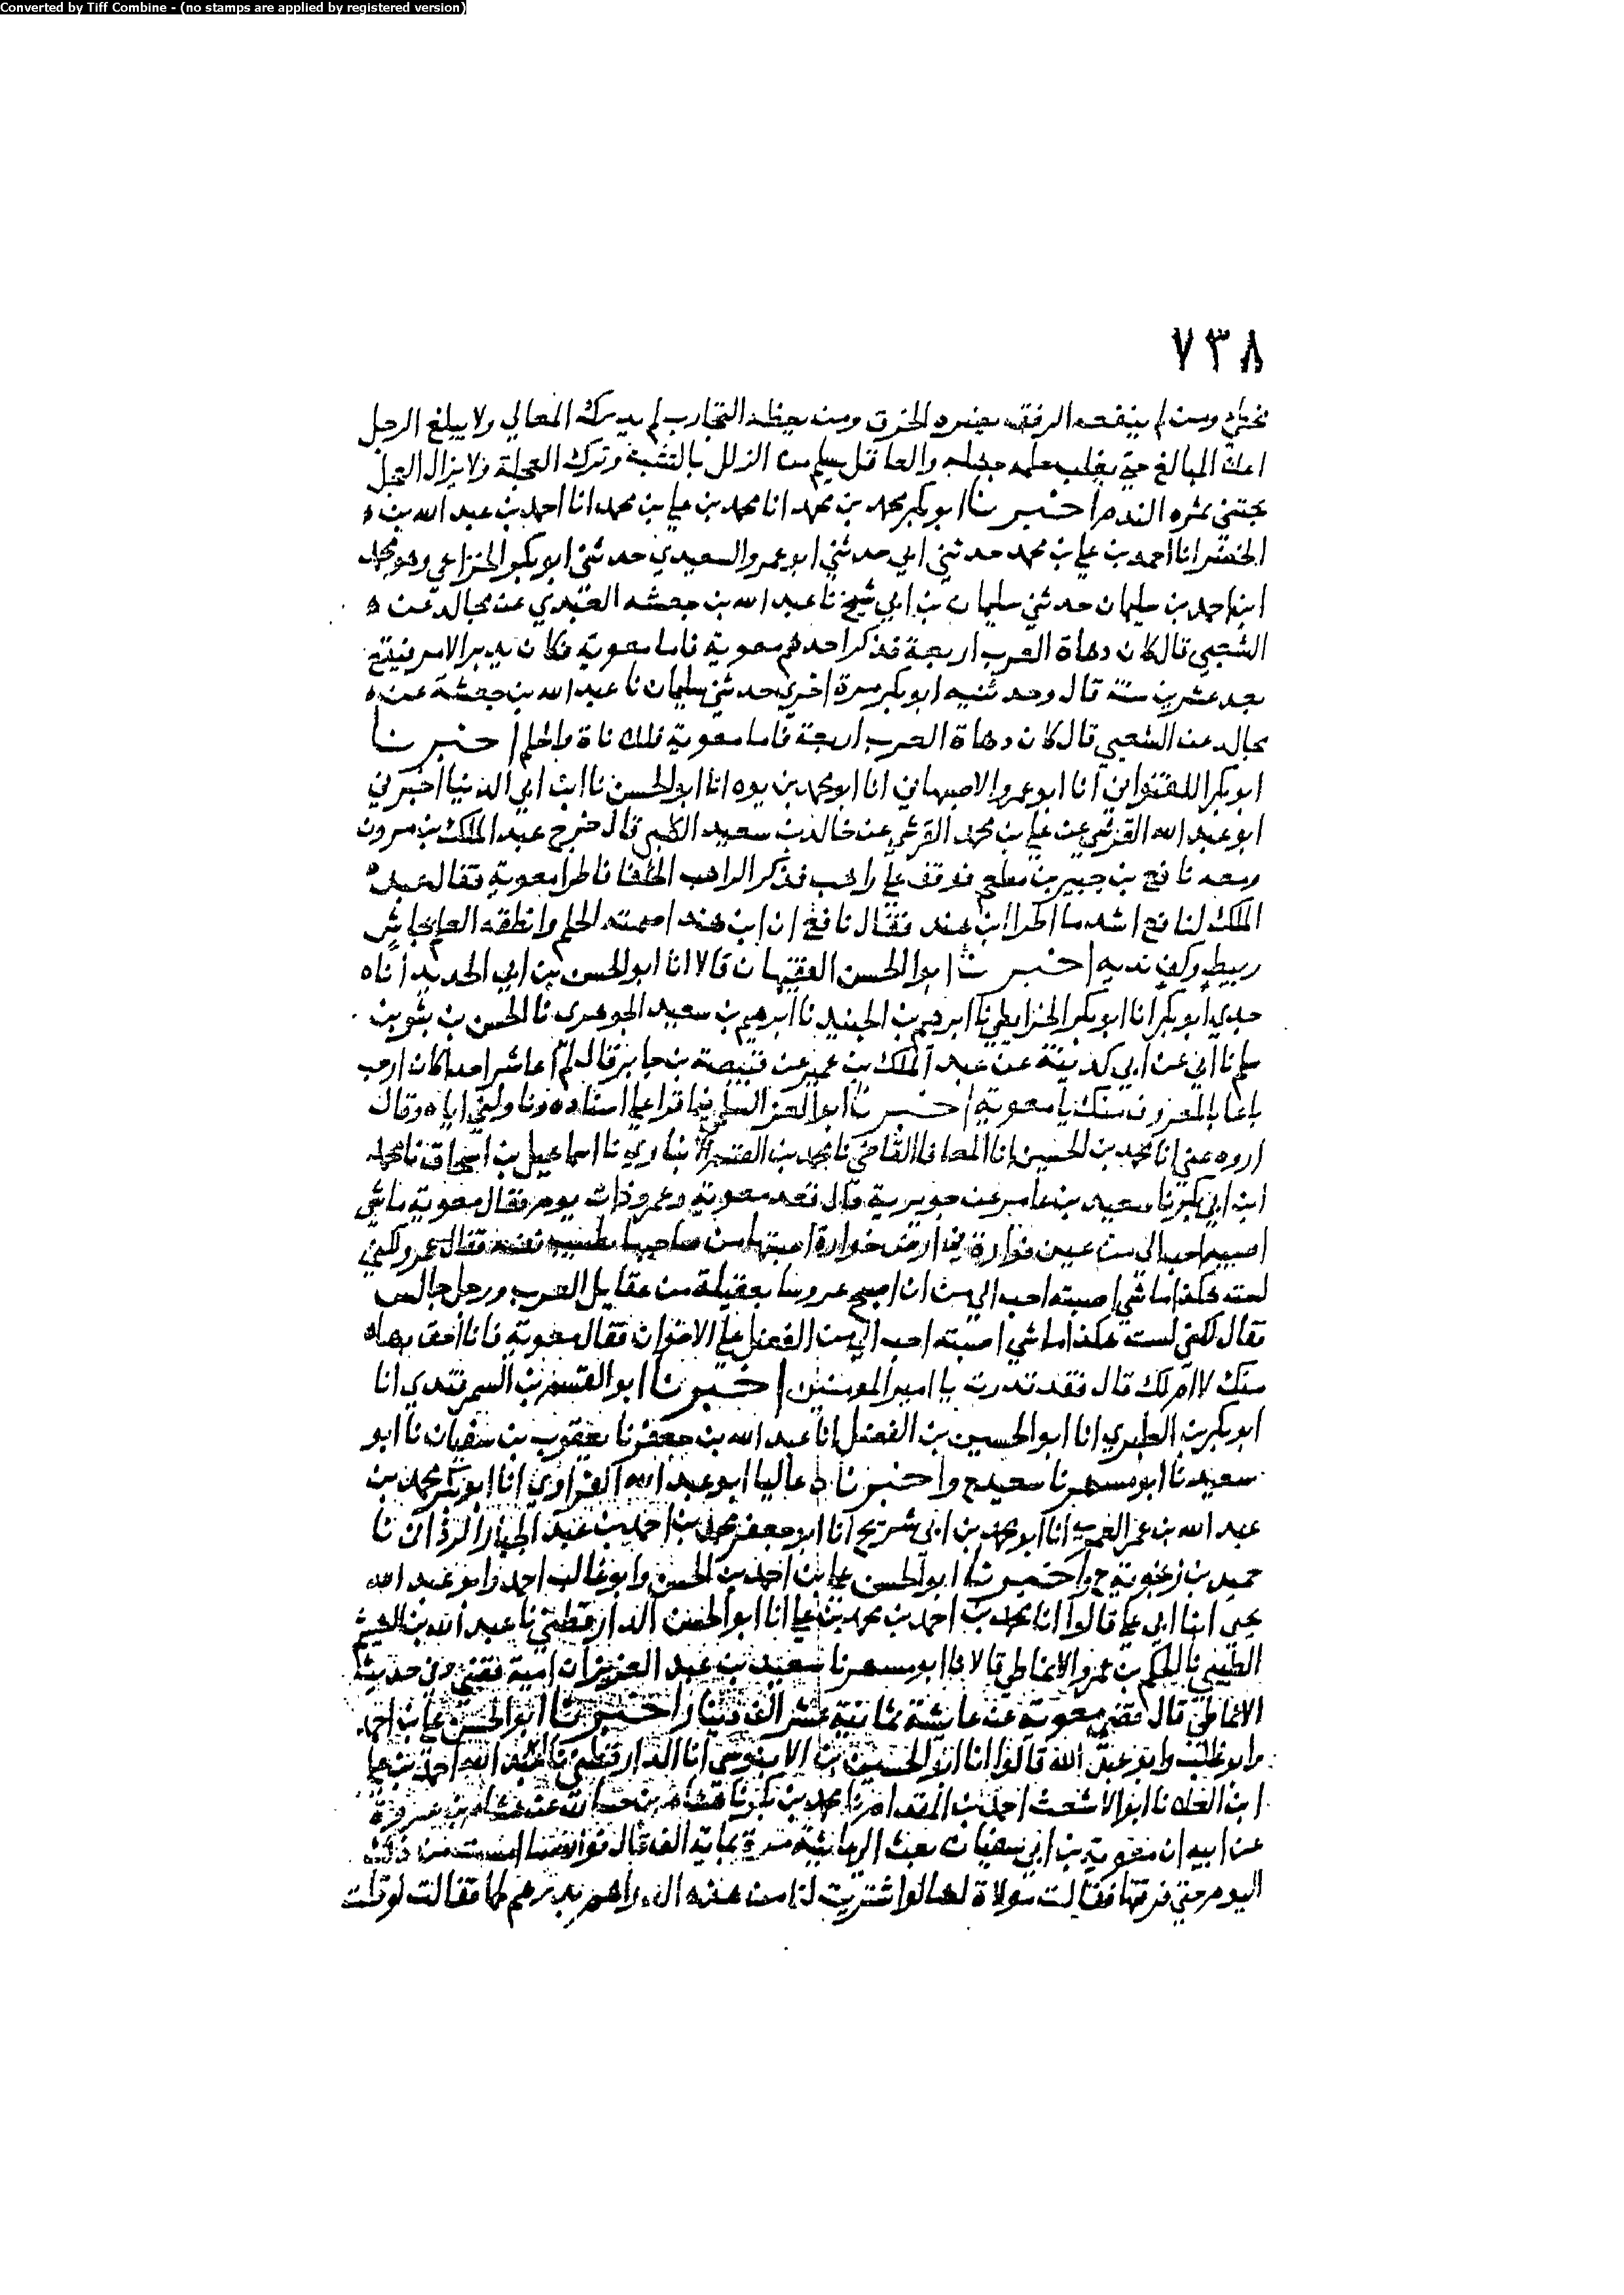 Converted by Tiff Combine - (no stamps are applied by registered version)
٧٣٨
ومن لم ينفعه الرفق يضره الخرق ومن يعظه التجارب لم يدرك المعالي ولا يبلغ الرجل
المبالغ حتى يغلب حلمه جهله والعاقل يسلم من الزلل بالتثبت وترك العجلة ولا يزال العجل
يجتني ثمره الندم اخبرنا ابو بكر محمد بن محمد انا محمد بن علي بن محمد انا احمد بن عبد الله بن
الخضر انا احمد بن علي بن محمد حدثني ابي حدثني ابو عمرو السعيدي حدثني ابو بكر الخزاعي وهو محمد
ابن احمد بن سليمان حدثني سليمان بن ابي شيخ نا عبد الله بن جعشه العبدي عن مجالد عن
الشعبي قال كان دهاة العرب اربعة فذكر احدهم معوية فاما معوية فكان يدبر الامر فيقع
بعد عشرين سنة قال وحدثنيه ابو بكر مرة اخرى حدثني سليمان نا عبد الله بن جعشة عن
مجالد عن الشعبي قال كان دهاة العرب اربعة فاما معوية فللاناة والحلم اخبرنا
ابو بكر اللفتواني انا ابو عمرو الاصبهاني انا ابو محمد بن يوه انا ابو الحسن نا ابن ابي الدنيا اخبرني
ابو عبد الله القرشي عن علي بن محمد القرشي عن خالد بن سعيد الكلبي قال خرج عبد الملك بن مرون
ومعه نافع بن جبير بن مطعم فوقف على راهب فذكر الراهب الخلفا فاطرا معوية فقال عبد
الملك لنافع اشد ما اطرا ابن هند فقال نافع ان ابن هند اصمته الحلم وانطقه العلم بجاش
ربيط وكف نديه اخبرنا ابوا الحسن الفقيهان قالا انا ابو الحسن بن ابي الحديد اناه
جدي ابو بكر انا ابو بكر الخرايطي نا ابرهيم بن الجنيد نا ابرهيم بن سعيد الجوهري نا الحسن بن بشر بن
سلم نا ابي عن ابي كدينة عن عبد الملك بن عمير عن قبيصة بن جابر قال لم اعاشر احدا كان ارحب
باعا بالمعروف منك يا معوية اخبرنا ابو العز السلمي فيما قرا علي اسناده وناولني اياه وقال
اروه عني انا محمد بن الحسين انا المعافا القاضي نا محمد بن القسم الانباري نا اسماعيل بن اسحاق نا محمد
ابن ابي بكر نا سعيد بن عامر عن جويرية قال قعد معوية وعمرو ذات يوم فقال معوية ما شي
اصيبه احب الي من عين فوارة في ارض خوارة فقال عمرو لكني
لست هكذا ما شي اصبته احب الي من ان اصبح عروسا بعقيلة من عقايل العرب ورجل جالس
فقال لكني لست هكذا ما شي اصبته احب الي من الفضل على الاخوان فقال معوية فانا احق بهاه
منك لا ام لك قال فقد قدرت يا امير المومنين اخبرنا ابو القسم بن السمرقندي انا
ابو بكر بن الطبري انا ابو الحسين بن الفضل انا عبد الله بن جعفر نا يعقوب بن سفيان نا ابو
سعيد نا ابو مسهر نا سعيد ح واخبرناه عاليا ابو عبد الله الفراوي انا ابو بكر محمد بن
عبد الله بن عمر العمري انا ابو محمد بن ابي شريح انا ابو جعفر محمد بن احمد بن عبد الجبار الرذاني نا
حميد بن زنجوية ح واخبرنا ابو الحسن علي بن احمد بن الحسن وابو غالب احمد وابو عبد الله
يحيى ابنا ابي علي قالوا انا محمد بن احمد بن محمد بن علي انا ابو الحسن الدارقطني نا عبد الله بن الهيثم
الطيبي نا الحكم بن عمرو الانماطي قالا نا ابو مسهر نا سعيد بن عبد العزيز ان فقضى وفي حديث
الانماطي قال قضى معوية عن عايشة ثمانية عشر الف دينار اخبرنا ابو الحسن علي بن احمد
وابو غالب وابو عبد الله قالوا انا ابو الحسين بن الابنوسي انا الدارقطني نا ابو عبد الله احمد بن علي
ابن العلا نا ابو الاشعث احمد بن المقدام نا محمد بن بكر نا هشام بن حسان عن هشام بن عروة
عن ابيه ان معوية بن ابي سفيان بعث الى عايشة مرة بماية الف قال فوالله ما امست من ذلك
اليوم حتى فرقتها فقالت مولاة لها لو اشتريت لنا من هذه الدراهم بدرهم لحما فقالت لو قلت